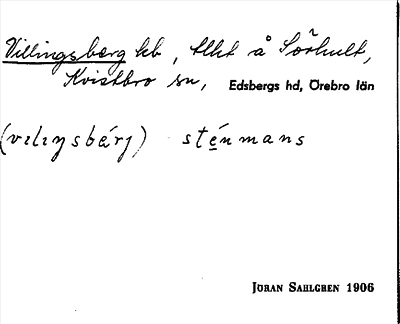 Villingsberg kb, tlkt å Sörhult,
Kvistbro sn, Edsbergs hd, Örebro län
(vılıŋsbǽrj) sténmans
JÖRAN SAHLGREN 1906